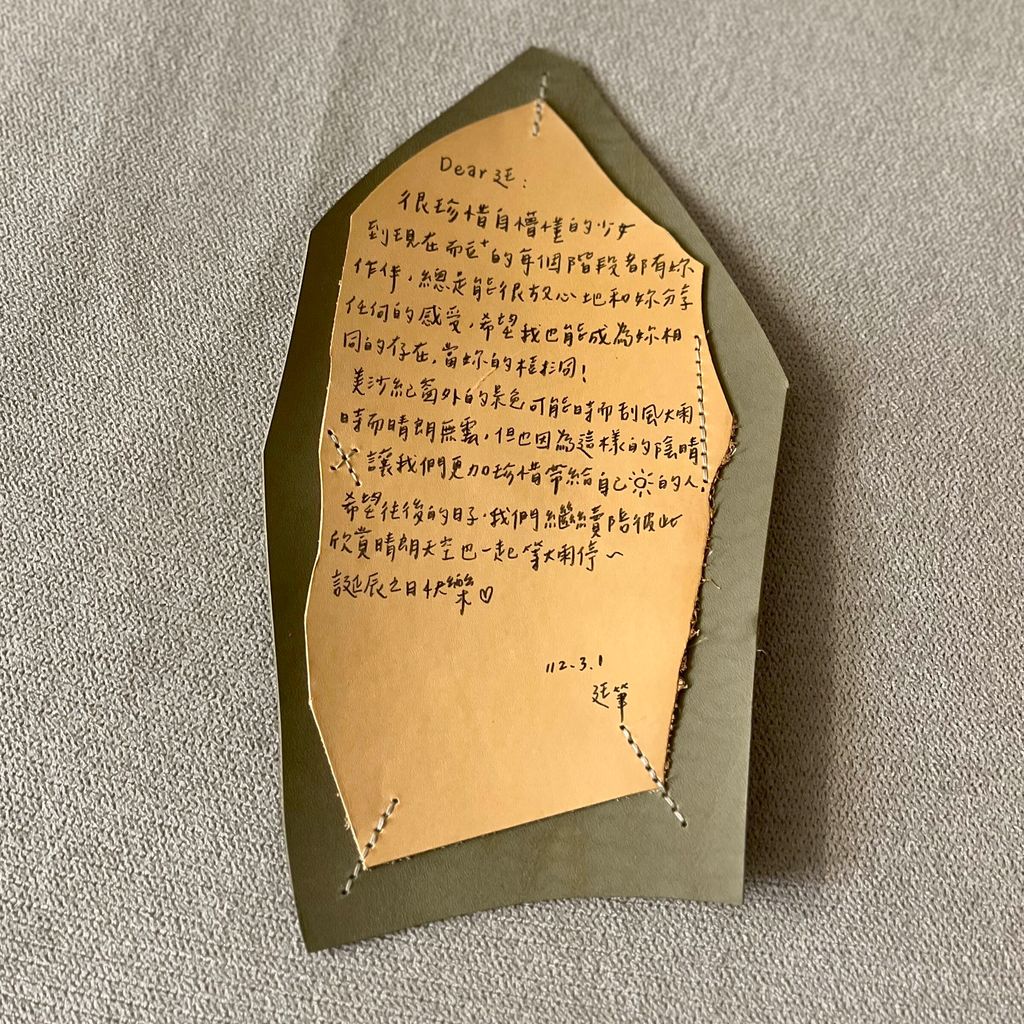 Dear 廷:
很珍惜自懵懂的少女
到現在而立⁺的每個階段都有妳
作伴,總是能很放心地和妳分享
任何的感受,希望我也能成為妳相
同的存在,當妳的樹洞!
美沙紀窗外的景色可能時而刮風大雨
時而晴朗無雲,但也因為這樣的陰晴
讓我們更加珍惜帶給自己☼的人.
希望往後的日子,我們繼續陪彼此
欣賞晴朗天空也一起等大雨停~
誕辰之日快樂♡
112.3.1
廷筆